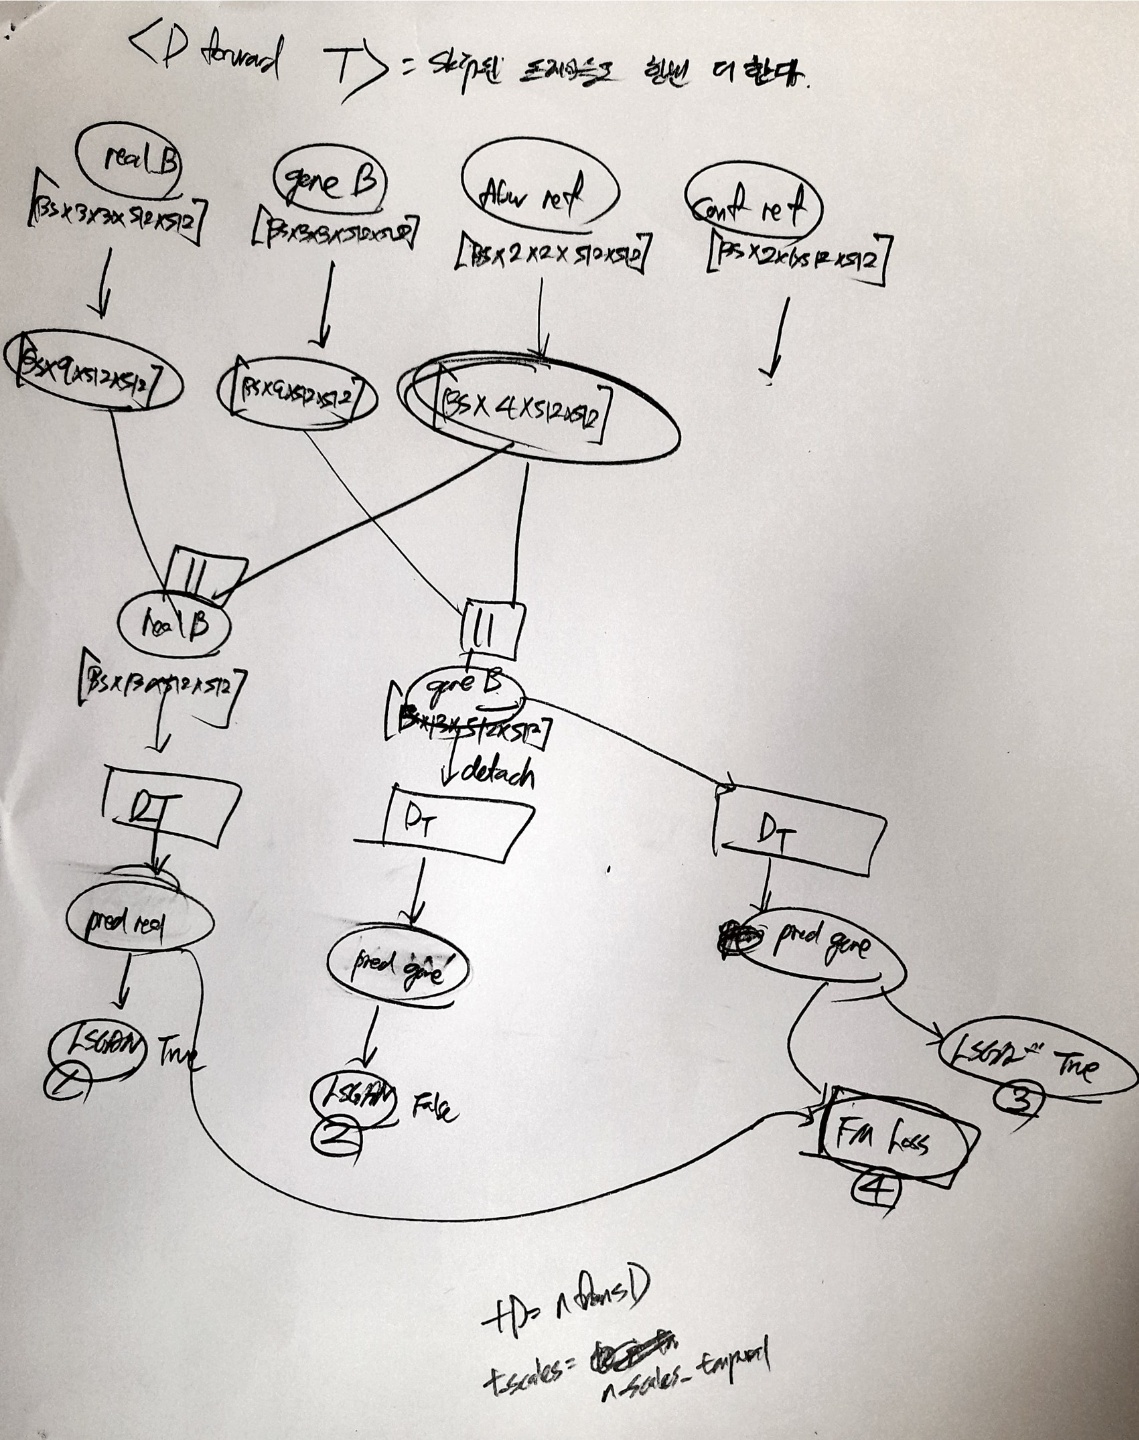 <D forward T> = skip된 프레임들도 한번 더 한다.
real_B
[Bs×3×3×512×512]
gene B
[Bs×3×3×512×512]
flow ref
[Bs×2×2×512×512]
Conf ref
[Bs×2×1×512×512]
[Bs×9×512×512]
[Bs×9×512×512]
[Bs×4×512×512]
||
real B
[Bs×13×512×512]
||
gene B
[Bs×13×512×512]
detach
DT
DT
DT
pred real
pred gene
pred gene
LSGAN True
①
LSGAN False
②
LSGAN True
③
FM Loss
④
tD = n_framesD
t_scales =
n_scales_temporal